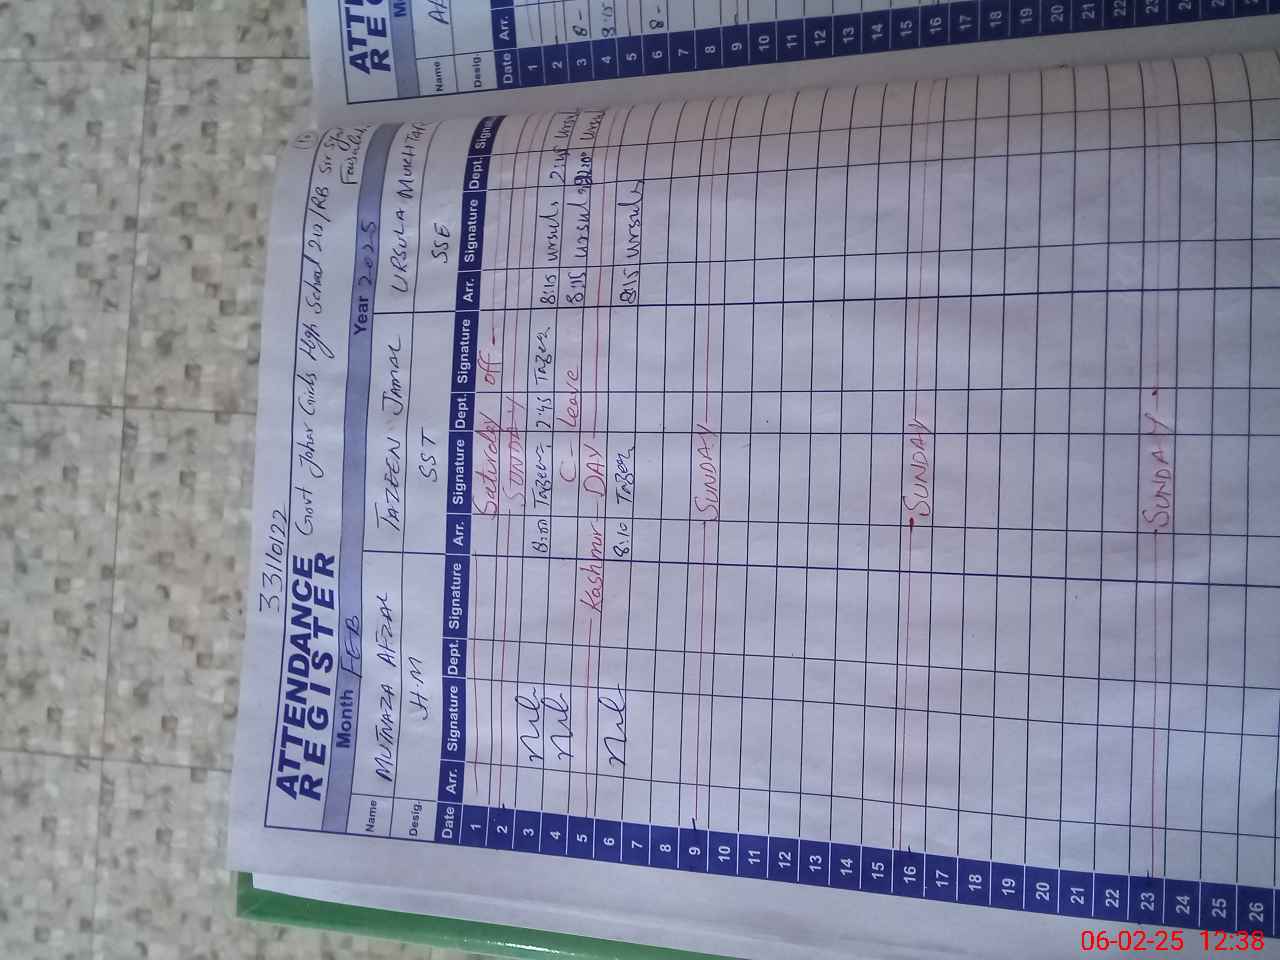 33110122
ATTENDANCE
REGISTER
Govt Johar Girls High School 212/RB Sir Sya
Month FEB Year 2025
Name MUTNAZA AFZAL TAZEEN JAMAL URSULA MUKHTAR
Desig. H.M SST SSE
Date Arr. Signature Dept. Signature Arr. Signature Dept. Signature Arr. Signature Dept. Signa
1 Saturday off
2 SUNDAY
3 8:00 Tazeen 2:45 Tazeen 8:15 Ursula 2:45 Ursu
4 C - Leave 8:15 Ursula Ursu
5 Kashmir DAY
6 8:10 Tazeen 8:15 Ursula
7
8
9 SUNDAY
10
11
12
13
14
15
16 SUNDAY
17
18
19
20
21
22
23 SUNDAY
24
25
26
ATTE
REG
M
Name
Desig.
Date Arr.
1
2
3 8-
4
5
6 8-
7
8
9
10
11
12
13
14
15
16
17
18
19
20
21
22
23
24
06-02-25 12:38